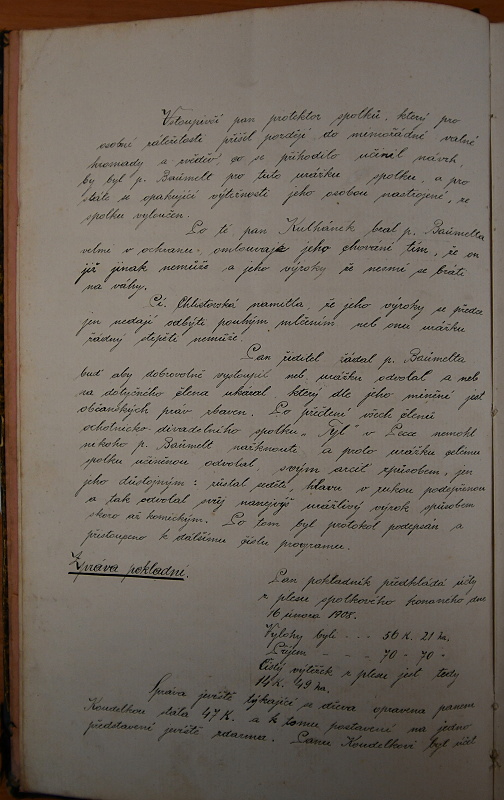 Vstoupivší pan protektor spolku, který pro
osobní záležitosti přišel později do mimořádné valné
hromady a zvěděv, co se přihodilo učinil návrh,
by byl p. Baŭmelt pro tuto urážku spolku, a pro
stále se opakující výtržnosti jeho osobou nastrojené, ze
spolku vyloučen.
Po té pan Kulhánek bral p. Baŭmelta
velmi v ochranu, omlouvaje jeho chování tím, že on
již jinak nemůže a jeho výroky že nesmí se bráti
na váhy.
Sl. Chlistovská namítla, že jeho výroky se přece
jen nedají odbýti pouhým mlčením neb onu urážku
řádný slepěti nemůže.
Pan ředitel žádal p. Baŭmelta
buď aby dobrovolně vystoupil neb urážku odvolal a neb
na dotyčného člena ukázal který dle jeho mínění jest
občanských práv zbaven. Po přečtení všech členů
ochotnicko-divadelního spolku „Tyl" v Pece nemohl
nikoho p. Baŭmelt nařknouti a proto urážku celému
spolku učiněnou odvolal, svým arcit způsobem, jen
jeho důstojným: zůstal seděti hlavu v rukou podepřenou
a tak odvolal svůj nanejvýš urážlivý výrok způsobem
skoro až komickým. Po tom byl protokol podepsán a
přistoupeno k dalšímu číslu programu.
Zpráva pokladní.
Pan pokladník předkládá účty
z plesu spolkového konaného dne
16 února 1908.
Výlohy byli - - - 56 K. 21 ha.
Příjem - - - 70 - 70 -
Čistý výtěžek z plesu jest tedy
14 K. 49 ha.
Správa jeviště týkající se dřeva opravena panem
Koudelkou stála 47 K. a k tomu postavení na jedno
představení jeviště zdarma. Panu Koudelkovi byl účet